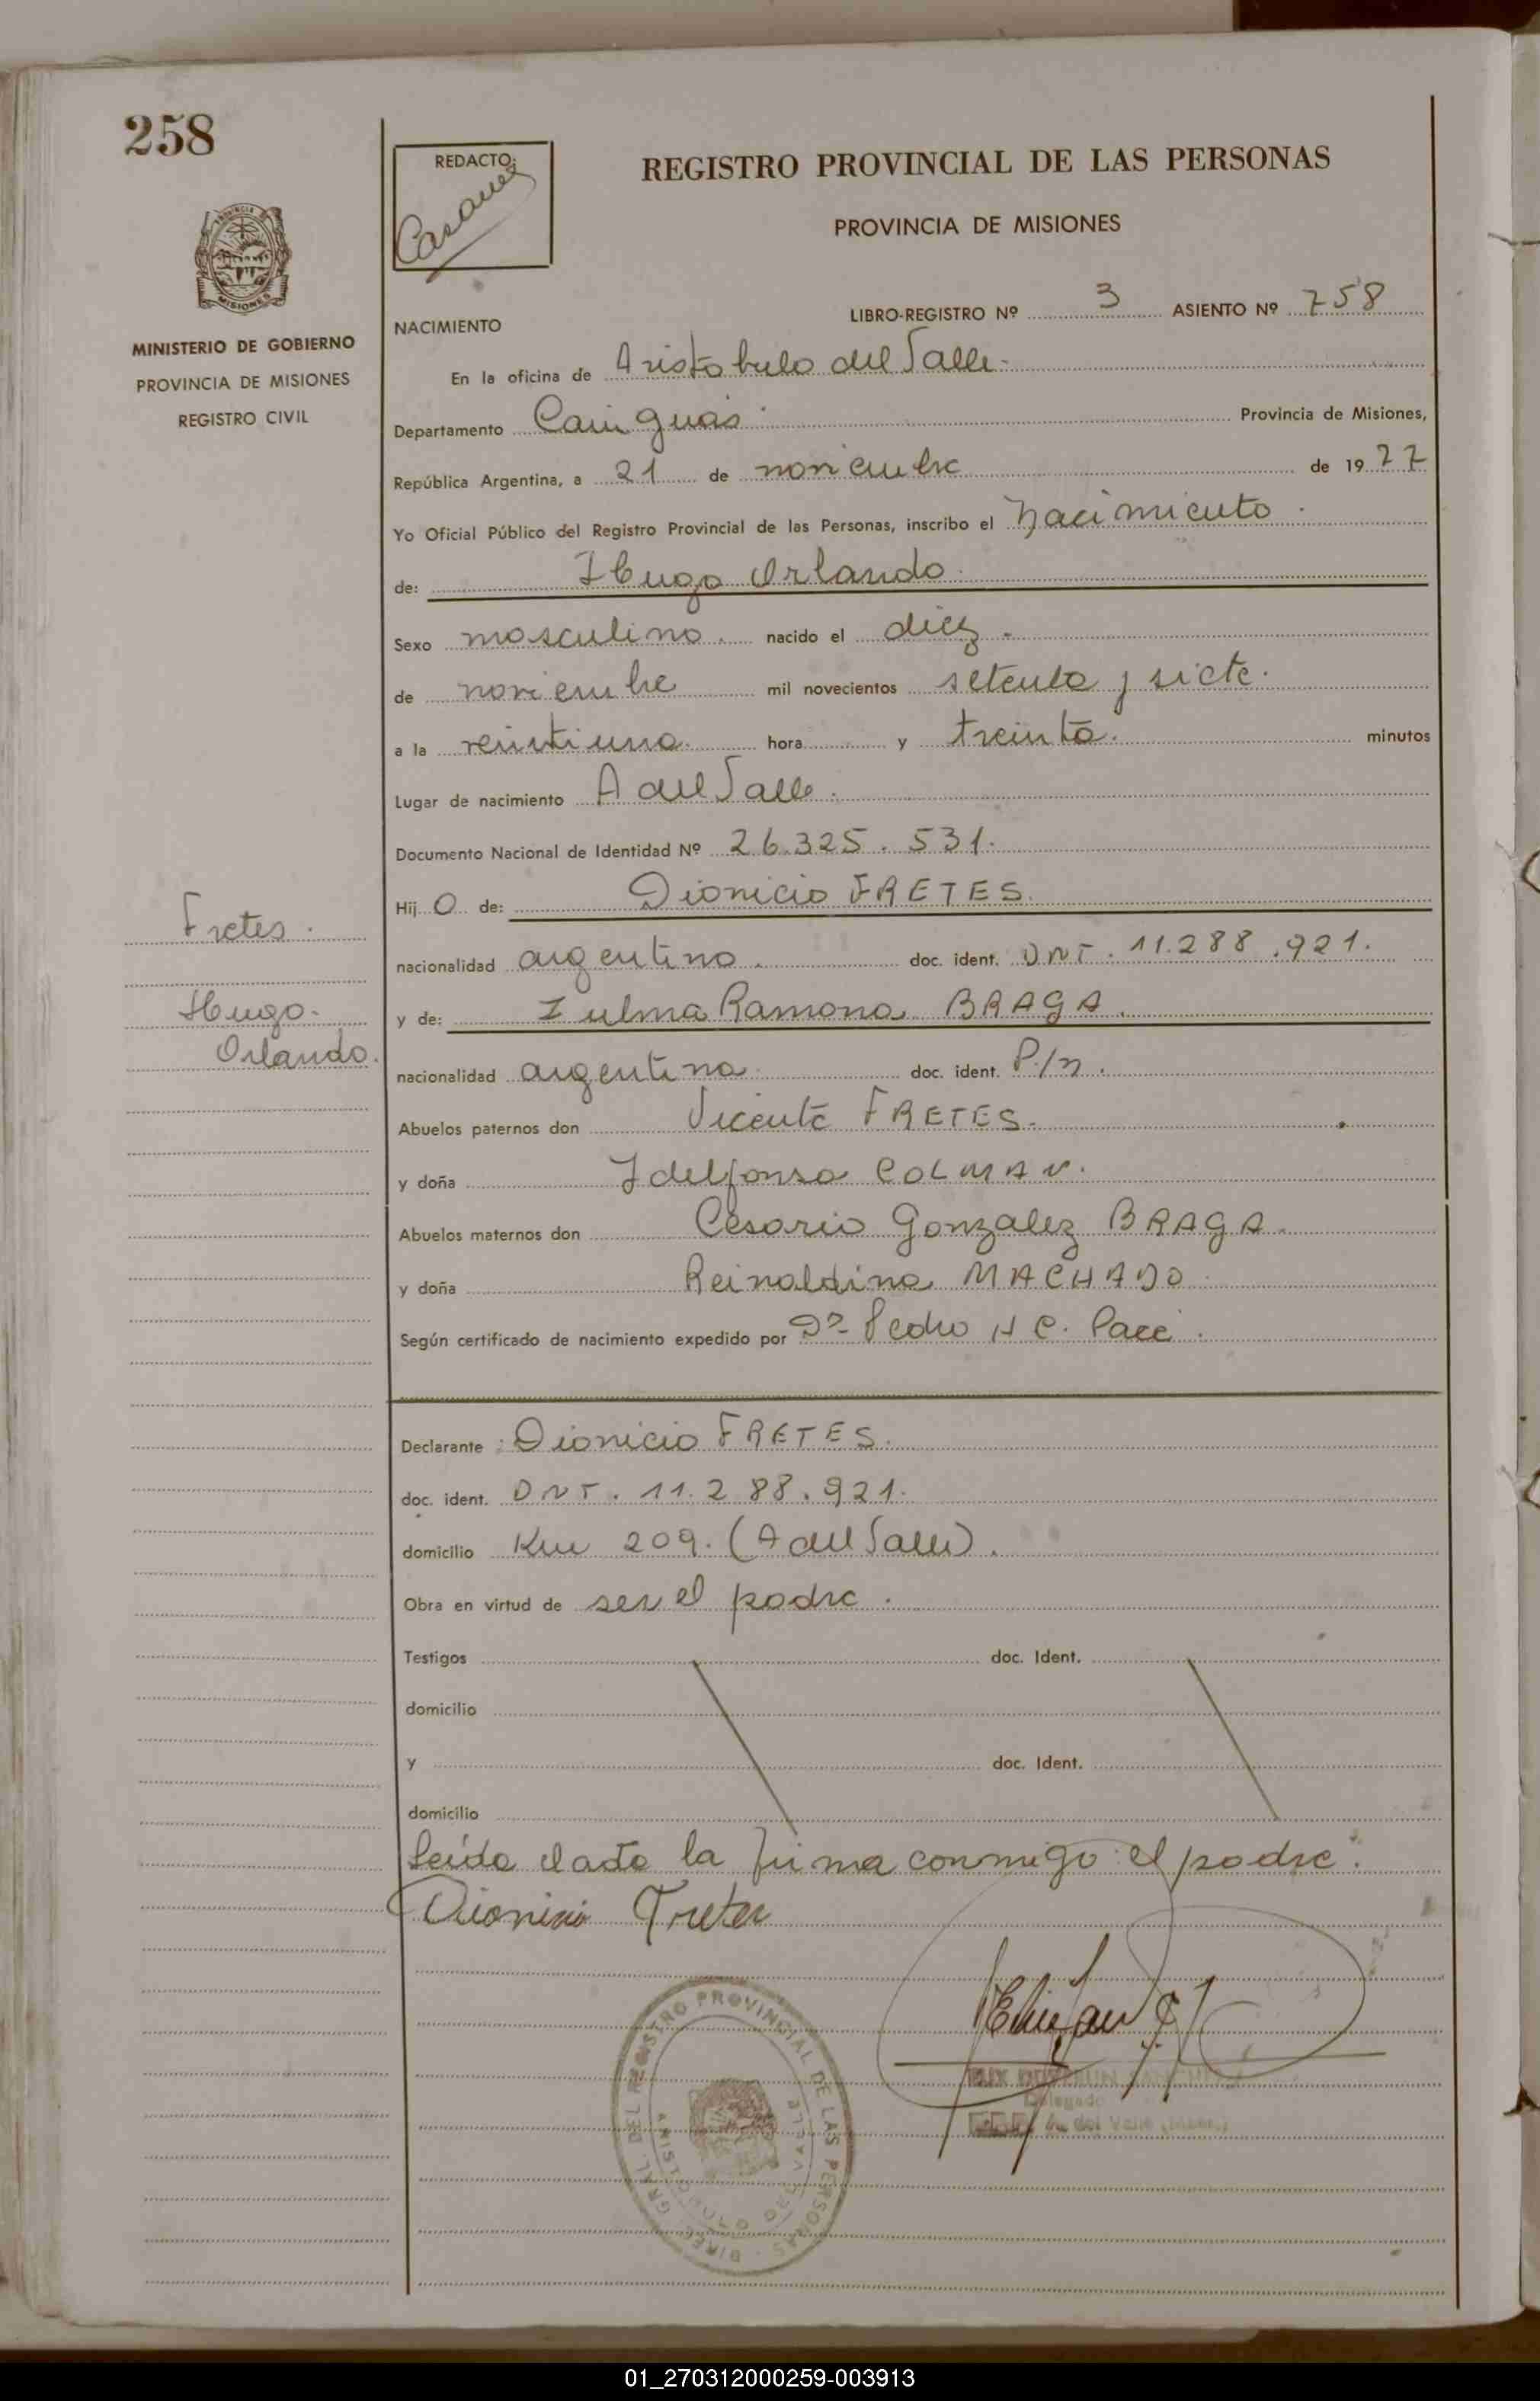 258
REDACTO:
REGISTRO PROVINCIAL DE LAS PERSONAS
PROVINCIA DE MISIONES
MINISTERIO DE GOBIERNO
PROVINCIA DE MISIONES
REGISTRO CIVIL
NACIMIENTO
LIBRO-REGISTRO Nº 3 ASIENTO Nº 758
En la oficina de Aristobulo del Valle.
Departamento Cainguás Provincia de Misiones,
República Argentina, a 21 de noviembre de 1977
Yo Oficial Público del Registro Provincial de las Personas, inscribo el nacimiento
de: Hugo Orlando
Sexo masculino. nacido el diez.
de noviembre mil novecientos setenta y siete.
a la veintiuna hora y treinta. minutos
Lugar de nacimiento A del Valle.
Documento Nacional de Identidad Nº 26.325.531.
Fretes.
Hij o de: Dionicio FRETES.
nacionalidad argentino. doc. ident. DNI. 11.288.921.
Hugo.
y de: Zulma Ramona BRAGA.
Orlando.
nacionalidad argentina doc. ident. P/n.
Abuelos paternos don Vicente FRETES.
y doña Idelfonsa COLMAN.
Abuelos maternos don Cesario Gonzalez BRAGA.
y doña Reinaldina MACHADO
Según certificado de nacimiento expedido por Dr Pedro H C. Pace.
Declarante: Dionicio FRETES.
doc. ident. DNI. 11.288.921.
domicilio Km 209. (A del Valle).
Obra en virtud de ser el padre.
Testigos doc. Ident.
domicilio
y doc. Ident.
domicilio
Leída el acta la firma conmigo: el padre.
Dionicio Fretes
DIREC. GRAL. DEL REGISTRO PROVINCIAL DE LAS PERSONAS
Delegado
A. del Valle (Mnes.)
01_270312000259-003913